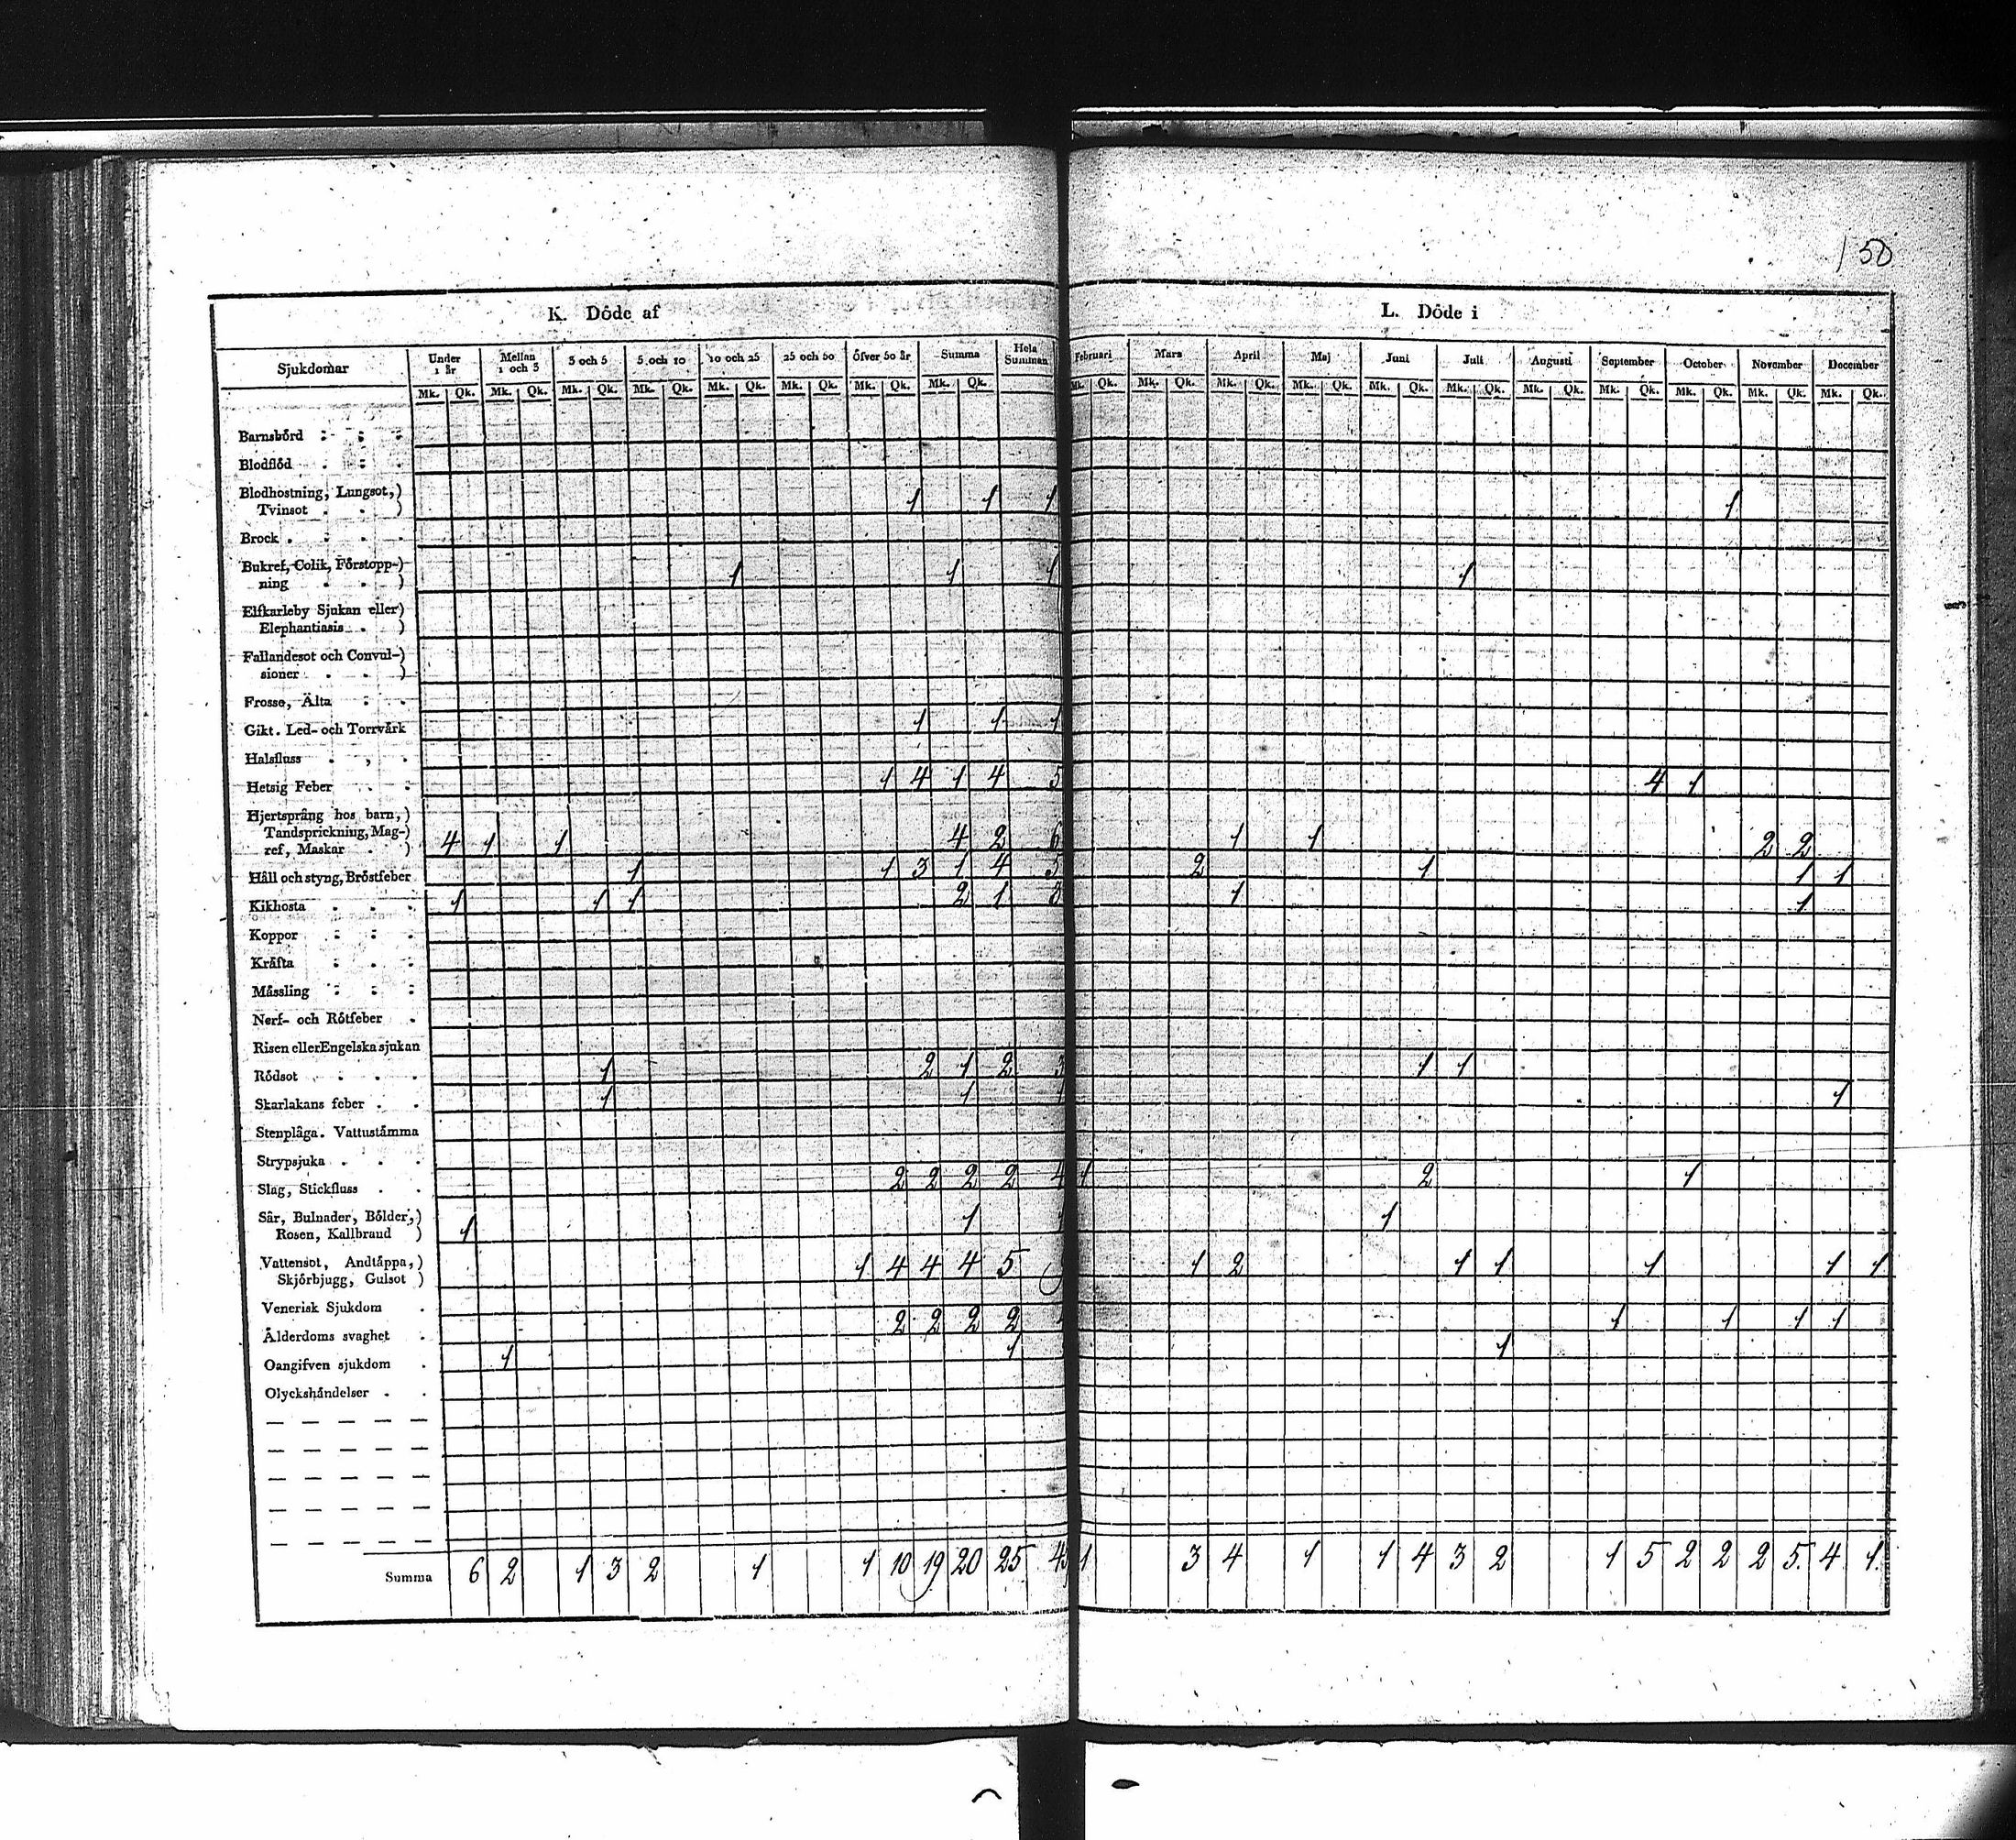 150
K. Döde af
L. Döde i
Sjukdomar Under 1 år Mellan 1 och 3 3 och 5 5 och 10 10 och 25 25 och 50 Öfver 50 år Summa Hela Summan Februari Mars April Maj Juni Juli Augusti September October November December
Mk. Qk. Mk. Qk. Mk. Qk. Mk. Qk. Mk. Qk. Mk. Qk. Mk. Qk. Mk. Qk. Mk. Qk. Mk. Qk. Mk. Qk. Mk. Qk. Mk. Qk. Mk. Qk. Mk. Qk. Mk. Qk. Mk. Qk. Mk. Qk. Mk. Qk.
Barnsbörd
Blodflöd
Blodhostning, Lungsot,)
Tvinsot . . ) 1 1 1 1
Brock
Bukref, Colik, Förstopp-)
ning . . ) 1 1 1 1
Elfkarleby Sjukan eller)
Elephantiasis . )
Fallandesot och Convul-)
sioner . . )
Frosse, Älta
Gikt. Led- och Torrvärk 1 1 1
Halsfluss
Hetsig Feber 1 4 1 4 5 4 1
Hjertsprång hos barn,)
Tandsprickning, Mag-)
ref, Maskar . ) 4 1 1 4 2 6 1 1 2 2
Håll och styng, Bröstfeber 1 1 3 1 4 5 2 1 1 1
Kikhosta 1 1 1 2 1 3 1 1
Koppor
Kräfta
Mässling
Nerf- och Rötfeber
Risen eller Engelska sjukan
Rödsot 1 2 1 2 3 1 1
Skarlakans feber 1 1 1 1
Stenplåga. Vattustämma
Strypsjuka
Slag, Stickfluss 2 2 2 2 4 1 2 1
Sår, Bulnader, Bölder,)
Rosen, Kallbrand ) 1 1 1 1
Vattensot, Andtäppa,)
Skjörbjugg, Gulsot ) 1 4 4 4 5 9 1 2 1 1 1 1 1
Venerisk Sjukdom
Ålderdoms svaghet 2 2 2 2 1 1 1 1
Oangifven sjukdom 1 1 1
Olyckshändelser
Summa 6 2 1 3 2 1 1 10 19 20 25 45 1 3 4 1 1 4 3 2 1 5 2 2 2 5 4 1